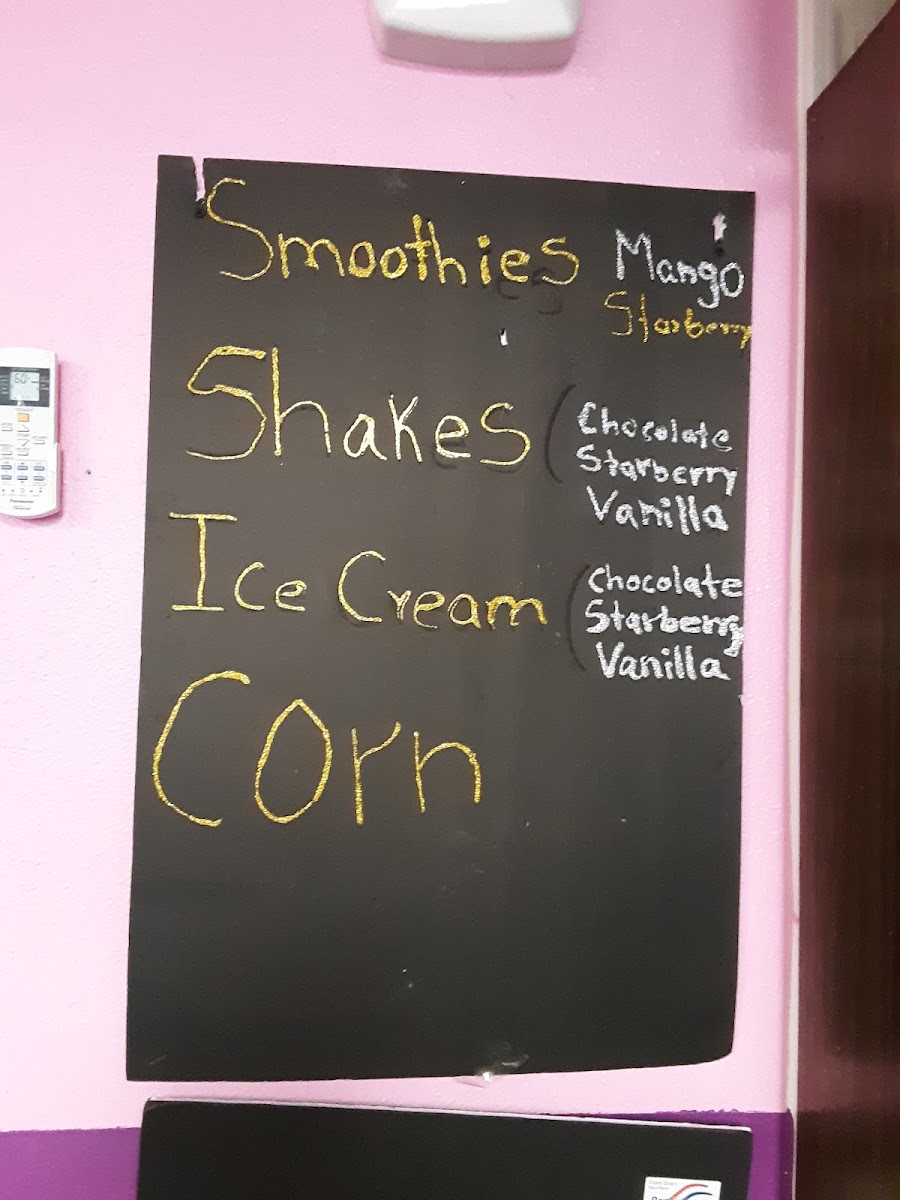 Smoothies Mango
Starberry
Shakes Chocolate
Starberry
Vanilla
Ice Cream Chocolate
Starberry
Vanilla
Corn
Panasonic